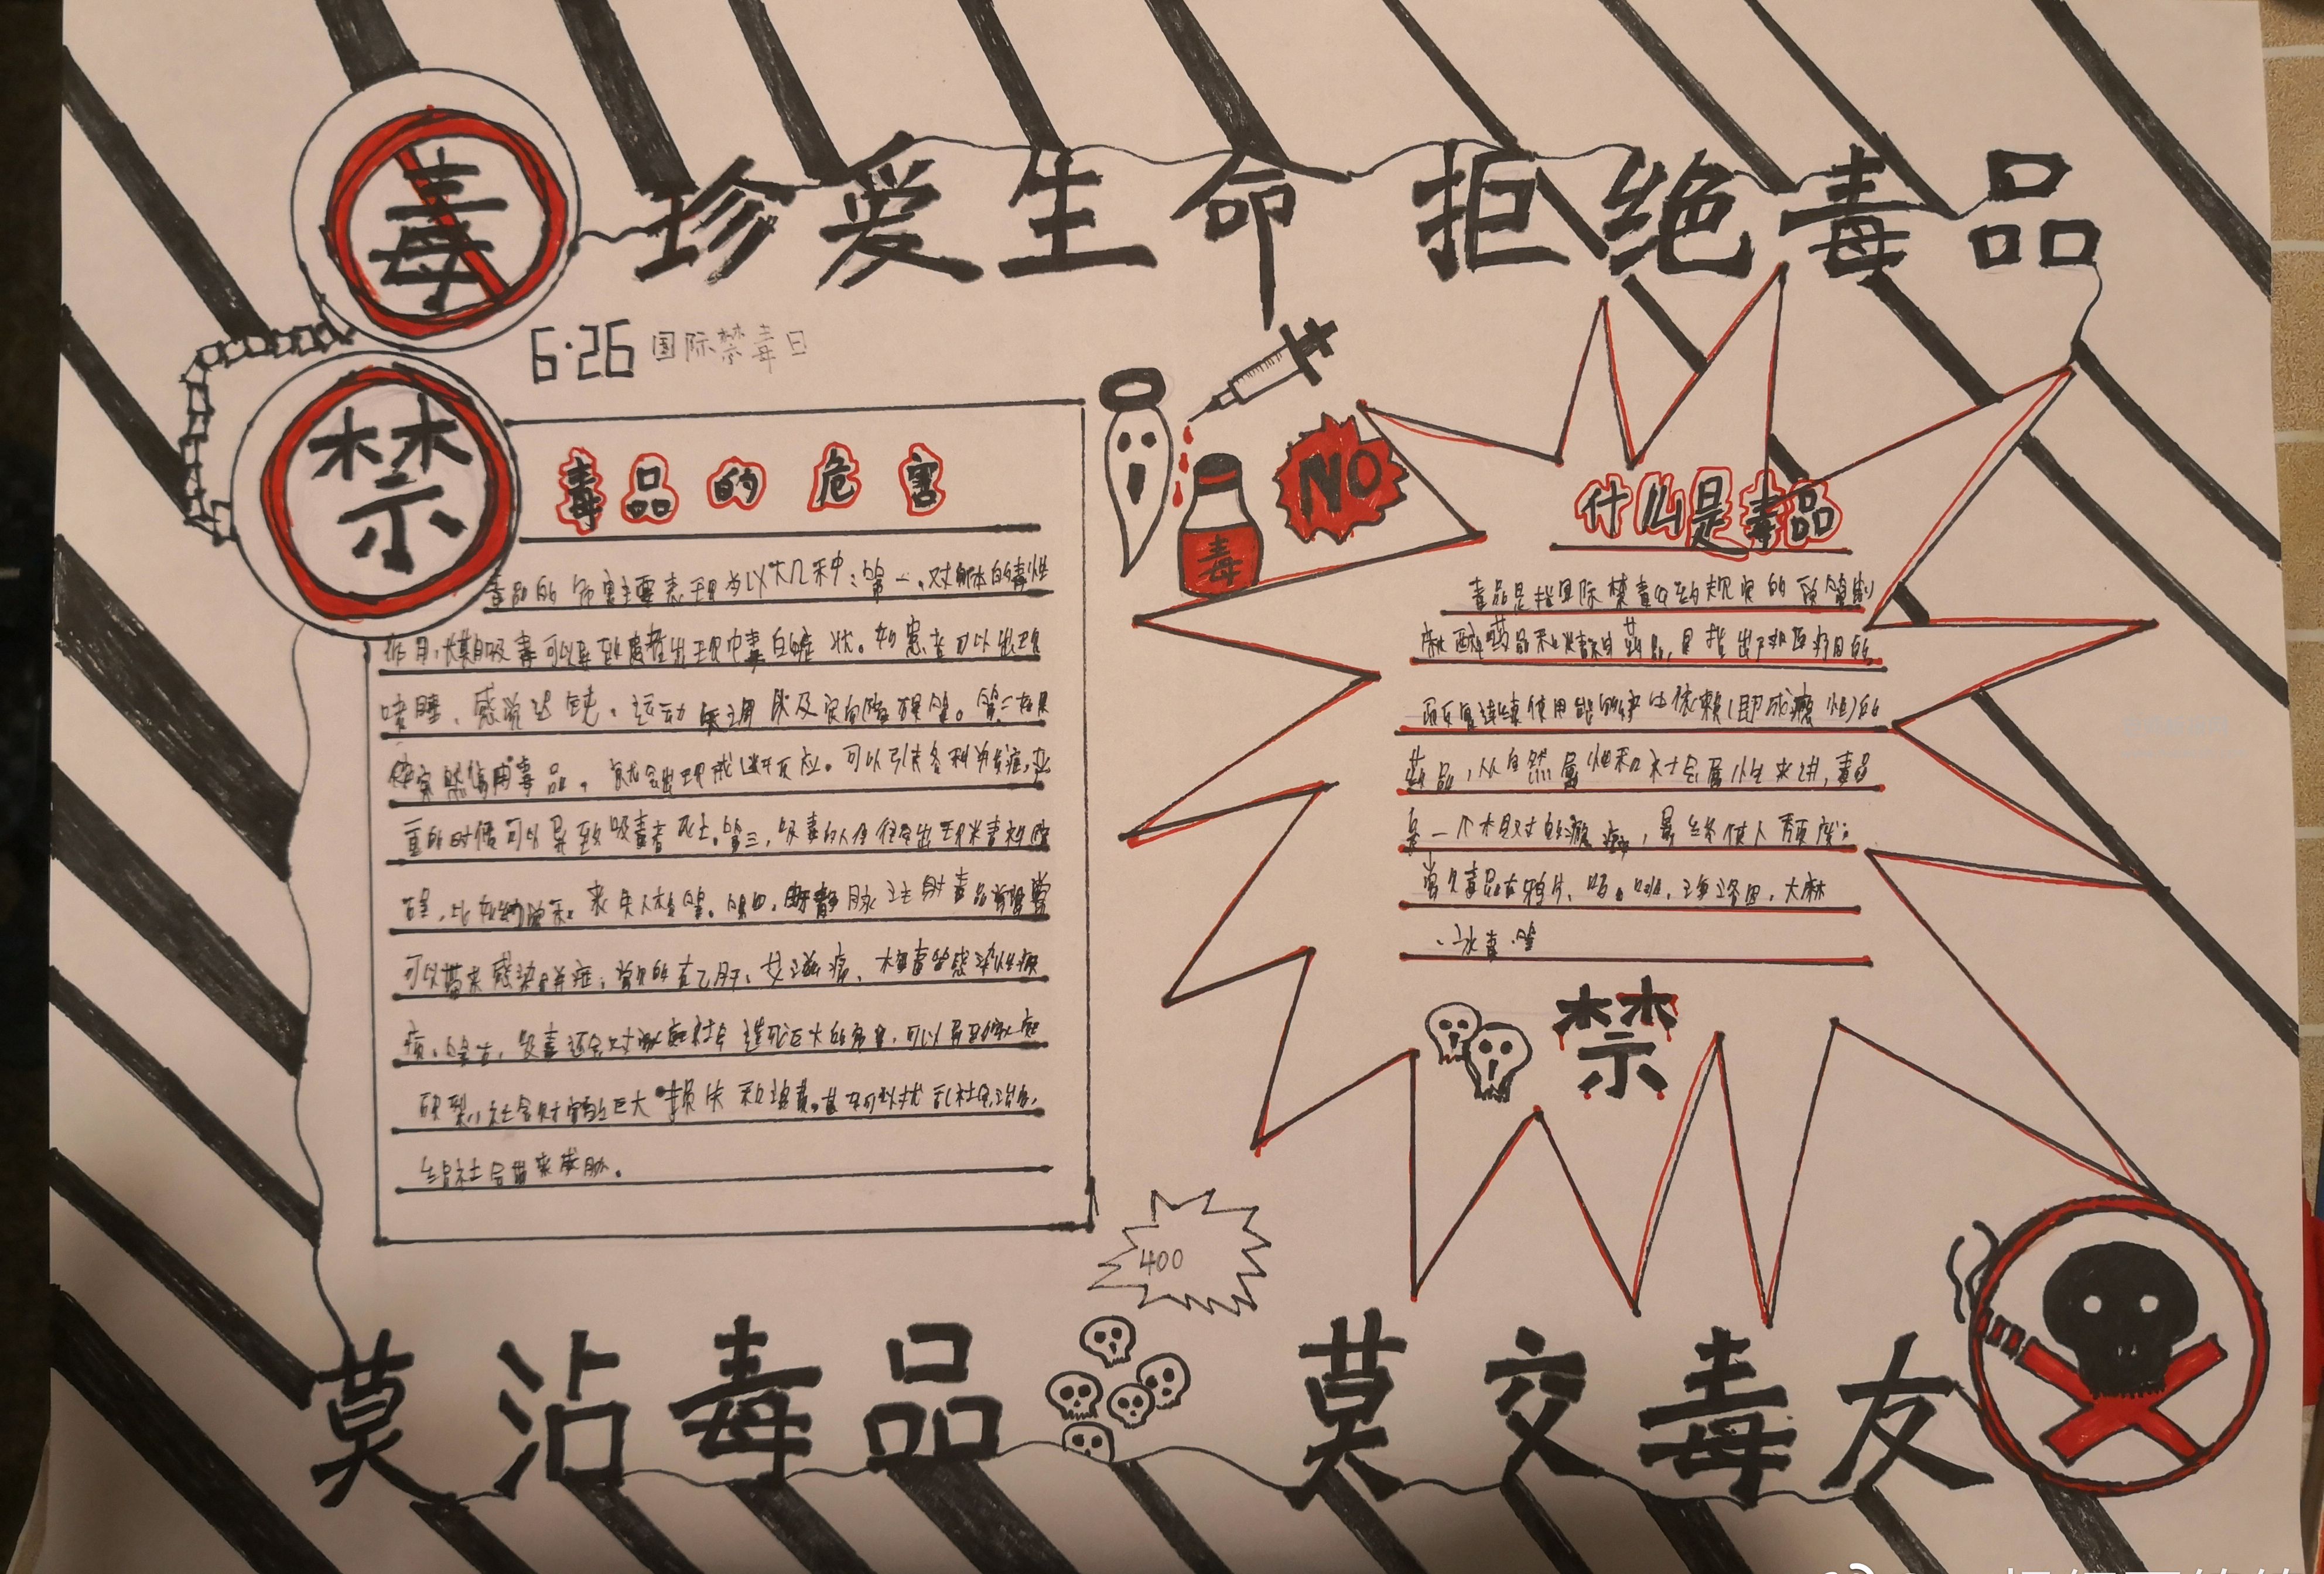 毒
珍爱生命 拒绝毒品
6·26 国际禁毒日
禁
毒品的危害
毒品的危害主要表现为以下几种：第一，对身体的毒性
作用，长期吸毒可以导致患者出现中毒的症状。如患者可以出现
嗜睡、感觉迟钝、运动失调以及定向障碍等。第二如果
突然停用毒品，就会出现戒断反应。可以引发各种并发症，严
重的时候可以导致吸毒者死亡。第三，吸毒的人往往会出现精神障
碍，比如幻觉 丧失人格等。第四，静脉注射毒品
可以带来感染合并症，常见的有乙肝、艾滋病、梅毒等感染性疾
病。吸毒还会对家庭社会造成巨大的危害，可以导致家庭
破裂，社会财富的巨大损失和浪费。甚至可以扰乱社会治安，
给社会带来威胁。
毒
NO
什么是毒品
毒品是指国际禁毒公约规定的受管制
麻醉药品和精神药品，是指出于非医疗目的
而反复连续使用能够产生依赖（即成瘾性）的
药品，从自然属性和社会属性来讲，毒品
是一个相对的，最终使人颓废；
常见毒品有鸦片、吗啡、海洛因、大麻
、冰毒等
禁
400
莫沾毒品 莫交毒友